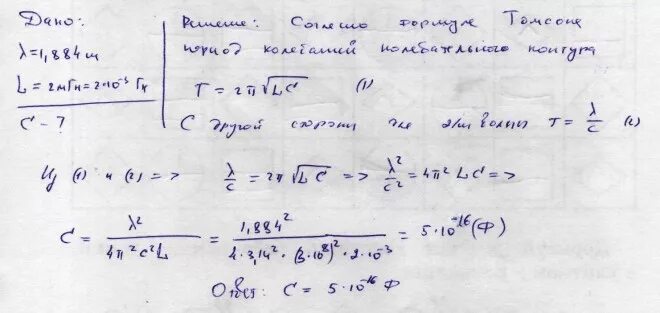 Дано:
λ=1,884 м
L = 2мГн = 2·10⁻³ Гн
C - ?
Решение: Согласно формуле Томсона
период колебаний колебательного контура
T = 2π√LC (1)
С другой стороны для э/м волны T = λ/c (2)
Из (1) и (2) => λ/c = 2π √LC => λ²/c² = 4π² LC =>
C = λ²/4π²c²L = 1,884²/4·3,14²·(3·10⁸)²·2·10⁻³ = 5·10⁻¹⁶ (Ф)
Ответ: C = 5·10⁻¹⁶ Ф